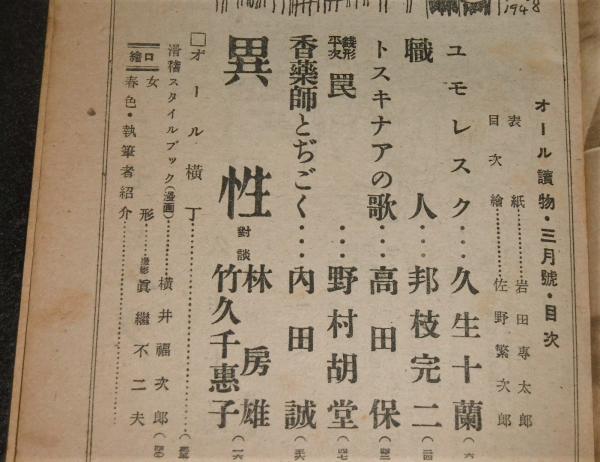 1948
オール讀物・三月號・目次
表紙……岩田專太郎
目次繪……佐野繁次郎
ユモレスク……久生十蘭
職人……邦枝完二
トスキナアの歌…高田保
錢形平次 罠……野村胡堂
香藥師とぢごく…内田誠
異性 對談 林房雄 竹久千惠子
□オール横丁
滑稽スタイルブック(漫画)……横井福次郎
口繪 女形……撮影 眞繼不二夫
春色・執筆者紹介